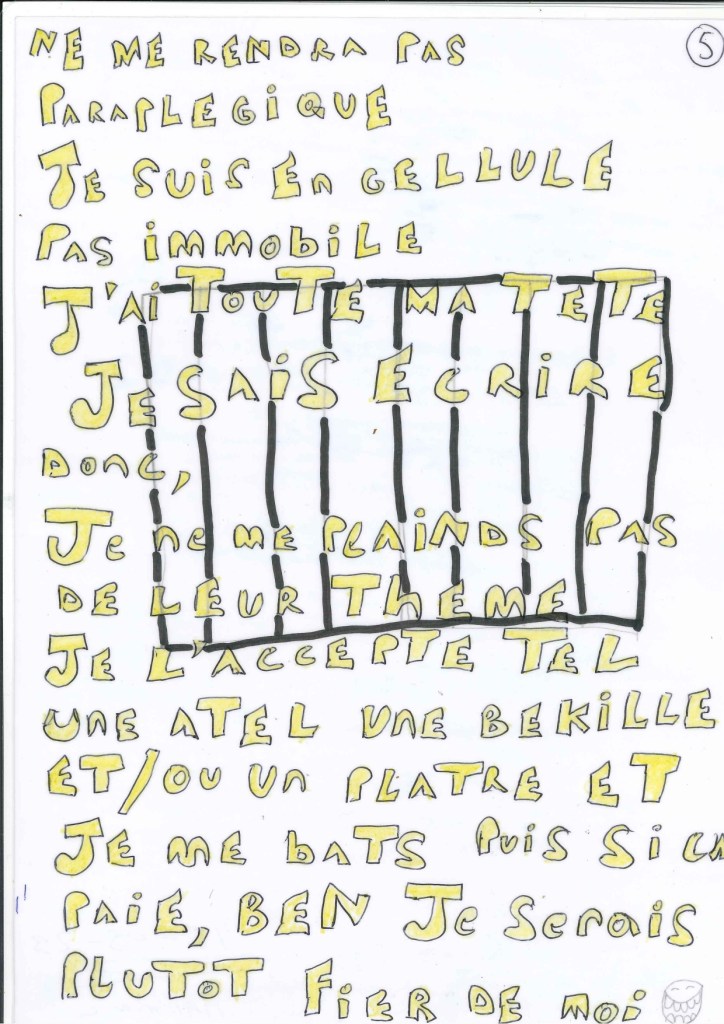 5
NE ME RENDRA PAS
PARAPLEGiQUE
JE SUiS En CELLULE
PAS iMMObiLE
J'Ai TOUTE MA TETE
JE SAiS ECRiRE
DOnC,
Je ne me PLAiNDS PAS
DE LEUR THEME
JE L'ACCEPTE TEL
UNE ATEL UNE BEKiLLE
ET/OU Un PLATRE ET
JE ME bATS PUiS Si CA
PAiE, BEN Je Serais
PLUTOT FiER DE MOi